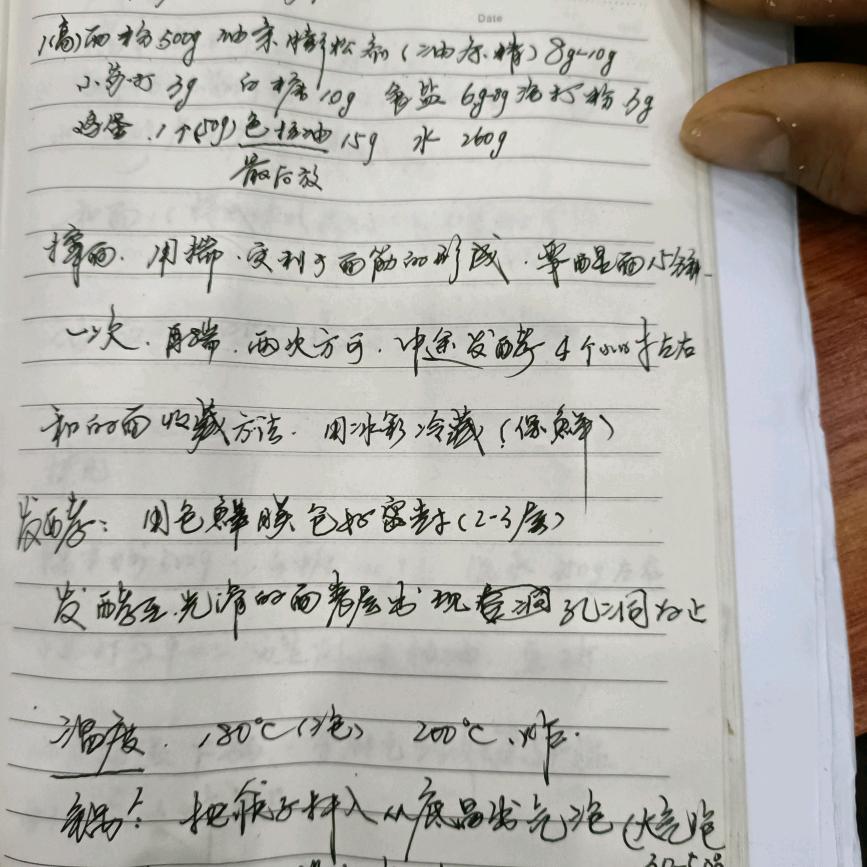 Date
(高)面粉500g 油条膨松剂(油条精) 8g-10g
小苏打 3g 白糖 10g 食盐 6g-8g 泡打粉 3g
鸡蛋.1个(50g) 色拉油 15g 水 260g
最后放
揉面.用揣.更利于面筋的形成. 醒面15分钟
一次.再揣.两次方可.中途发酵4个小时左右
和的面收藏方法. 用冰彩冷藏(保鲜)
发酵: 用包鲜膜包好密封(2-3层)
发酵至.光滑的面表层出现 孔洞为止
温度. 180℃(泡) 200℃.炸.
把筷子抻入从底部出气泡(大气泡